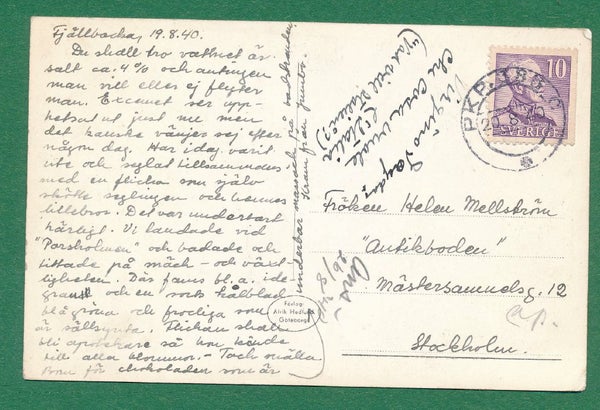 Fjällbacka, 19.8.40.
Du skall tro vattnet är
salt ca. 4% och antingen
man vill eller ej flyter
man. Exemet ser upp-
hetsat ut just nu men
det kanske vänjer sej efter
någon dag. Har idag varit
ute och seglat tillsammans
med en flicka som själv
skötte seglingen och hennes
lillebror. Det var underbart
härligt. Vi landade vid
"Porsholmen" och badade och
tittade på mäch- och växt
ligheten. Där fanns bl.a. ide-
gran och en sorts kålblad
blågröna och frodiga som
är sällsynta. Flickan skulle
bli apotekare så hon kände
till alla blommor. - Tack snälla
Rom för chokoladen som är
underbar på badstranden.
Kram från
che cosa vuole
PKP. 188
SVERIGE
10
Fröken Helen Mellström
"Antikboden"
Mästersamuelsg. 12
Stockholm.
Förlag:
Alrik Hedlund
Göteborg
Ans-
26/8